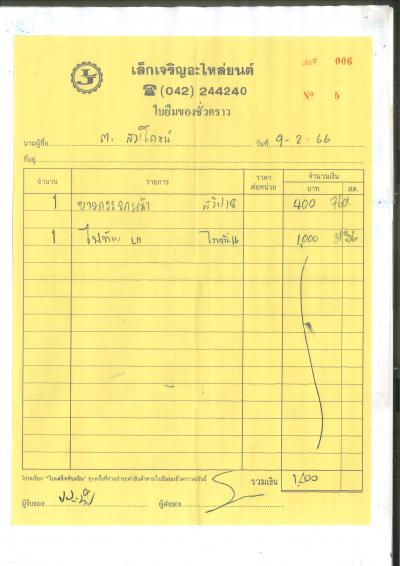 เล็กเจริญอะไหล่ยนต์
เล่มที่ 006
☎ (042) 244240
№ 5
ใบยืมของชั่วคราว
นามผู้ซื้อ ต. วันที่ 9-2-66
ที่อยู่
จำนวน รายการ ราคา ต่อหน่วย จำนวนเงิน บาท สต.
1 ยางกระจกหน้า 400
1 ไฟท้าย 1,000
โปรดเรียก "ใบเสร็จรับเงิน" ทุกครั้งที่ท่านชำระค่าสินค้าตามใบยืมของชั่วคราวฉบับนี้ รวมเงิน
ผู้รับของ ผู้ส่งของ